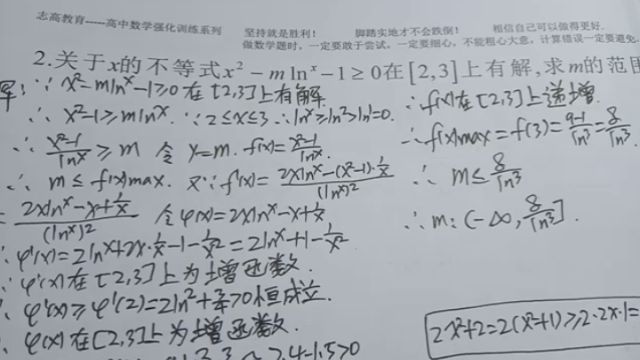 志高教育-----高中数学强化训练系列 坚持就是胜利! 脚踏实地才不会跌倒! 相信自己可以做得更好.
做数学题时,一定要敢于尝试,一定要细心,不能粗心大意,计算错误一定要避免.
2.关于x的不等式x²-m ln^x-1≥0在[2,3]上有解,求m的范围
∵ x²-mln^x-1≥0 在[2,3]上有解.
∴ x²-1≥mln^x. ∵2≤x≤3 ∴ln^x≥ln²>ln¹=0.
∴ (x²-1)/ln^x ≥ m 令 y=m. f(x)=(x²-1)/ln^x.
∴ m≤f(x)max. 又∵f'(x)=(2xln^x-(x²-1)·1/x)/(ln^x)²
=(2xln^x-x+1/x)/(ln^x)² 令φ(x)=2xln^x-x+1/x
∴φ'(x)=2ln^x+2x·1/x-1-1/x²=2ln^x+1-1/x²
∵φ'(x)在[2,3]上为增函数.
∴φ'(x)≥φ'(2)=2ln²+3/4>0恒成立.
∴φ(x)在[2,3]上为增函数.
2.4-1.5>0
∴f(x)在[2,3]上递增.
∴f(x)max=f(3)=(9-1)/ln³=8/ln³.
∴ m≤8/ln³
∴m:(-∞,8/ln³].
2x²+2=2(x²+1)≥2·2x·1=